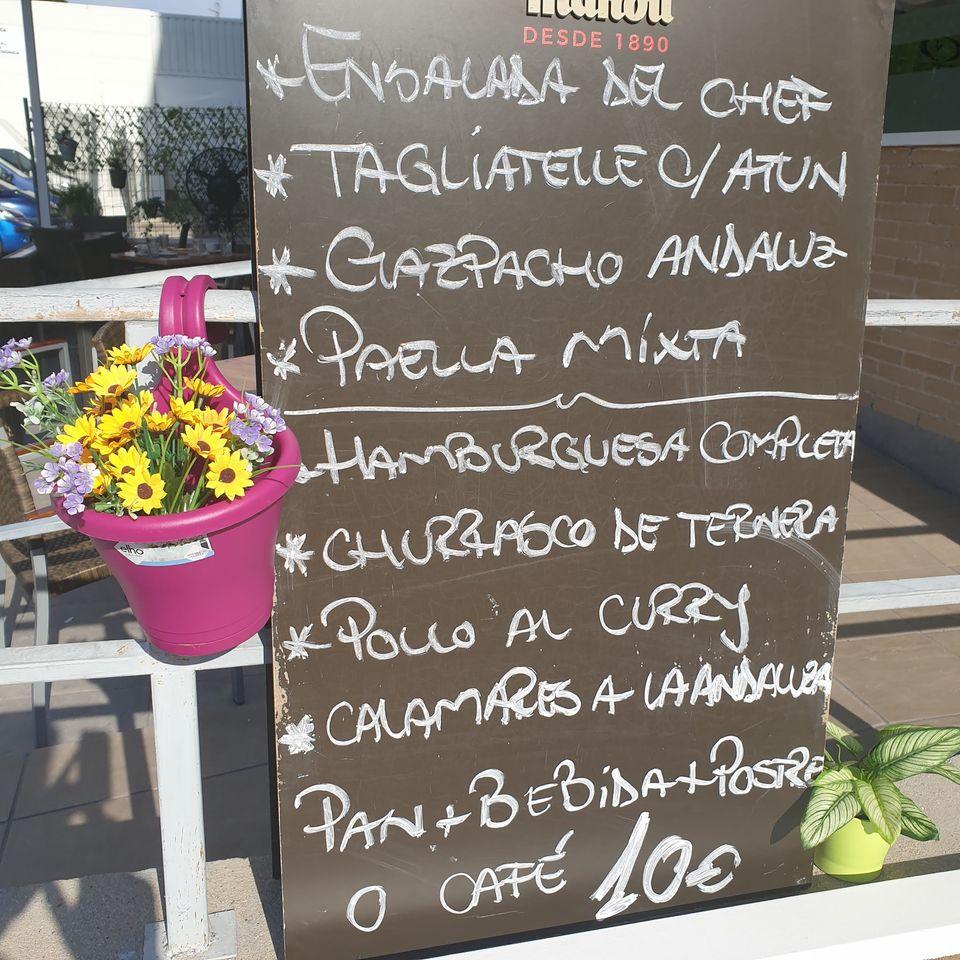 DESDE 1890
*ENSALADA DEL CHEF
*TAGLIATELLE C/ATUN
*GAZPACHO ANDALUZ
*PAELLA MIXTA
*HAMBURGUESA COMPLETA
*CHURRASCO DE TERNERA
*POLLO AL CURRY
*CALAMARES A LA ANDALUZA
PAN+BEBIDA+POSTRE
O CAFÉ 10€
elho